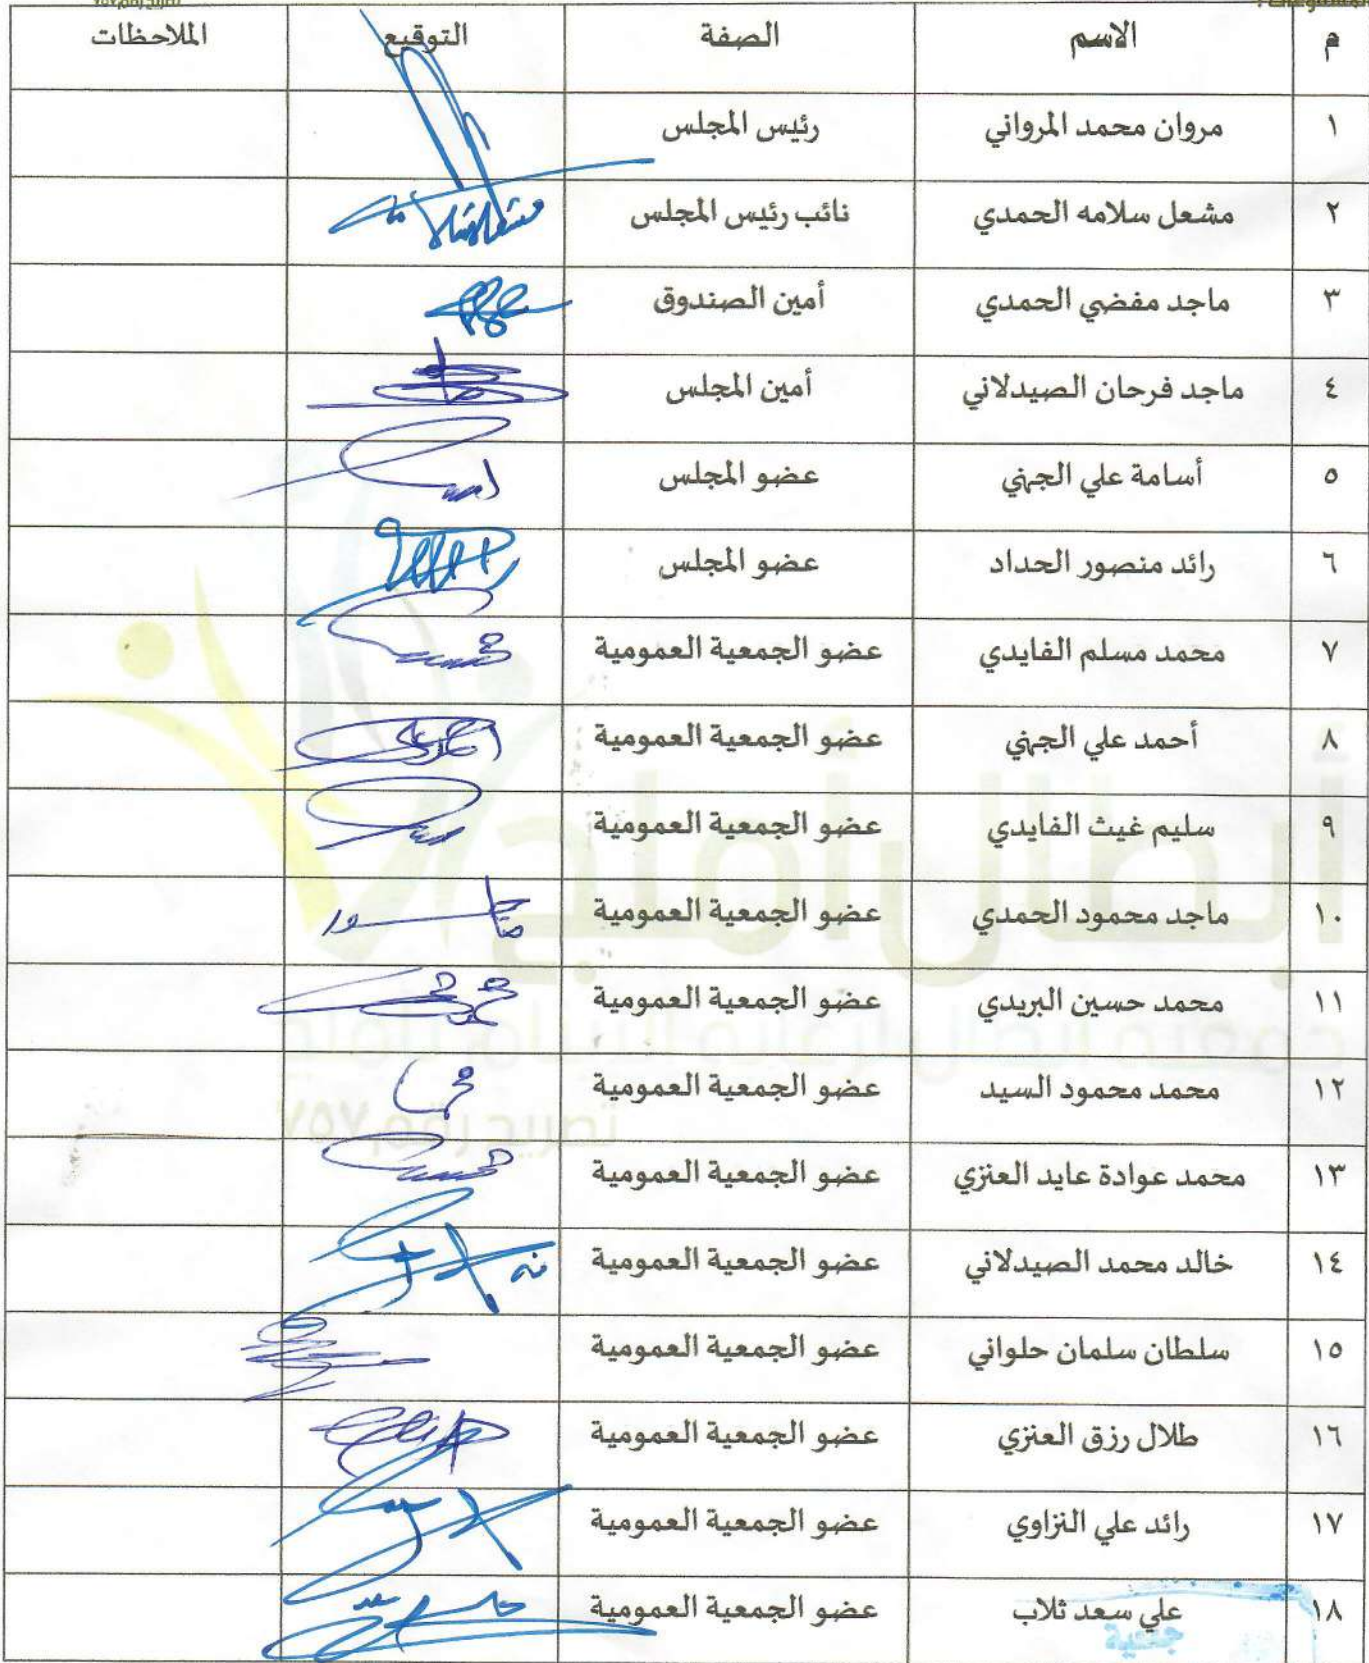 م الاسم الصفة التوقيع الملاحظات
١ مروان محمد المرواني رئيس المجلس
٢ مشعل سلامه الحمدي نائب رئيس المجلس
٣ ماجد مفضي الحمدي أمين الصندوق
٤ ماجد فرحان الصيدلاني أمين المجلس
٥ أسامة علي الجهني عضو المجلس
٦ رائد منصور الحداد عضو المجلس
٧ محمد مسلم الفايدي عضو الجمعية العمومية
٨ أحمد علي الجهني عضو الجمعية العمومية
٩ سليم غيث الفايدي عضو الجمعية العمومية
١٠ ماجد محمود الحمدي عضو الجمعية العمومية
١١ محمد حسين البريدي عضو الجمعية العمومية
١٢ محمد محمود السيد عضو الجمعية العمومية
١٣ محمد عوادة عايد العنزي عضو الجمعية العمومية
١٤ خالد محمد الصيدلاني عضو الجمعية العمومية
١٥ سلطان سلمان حلواني عضو الجمعية العمومية
١٦ طلال رزق العنزي عضو الجمعية العمومية
١٧ رائد علي النزاوي عضو الجمعية العمومية
١٨ علي سعد ثلاب عضو الجمعية العمومية
جمعية
أبطال أملج
تصريح رقم ٧٥٧